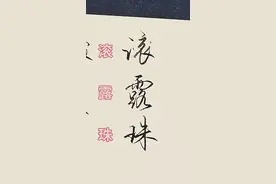 滚露珠
滚露珠